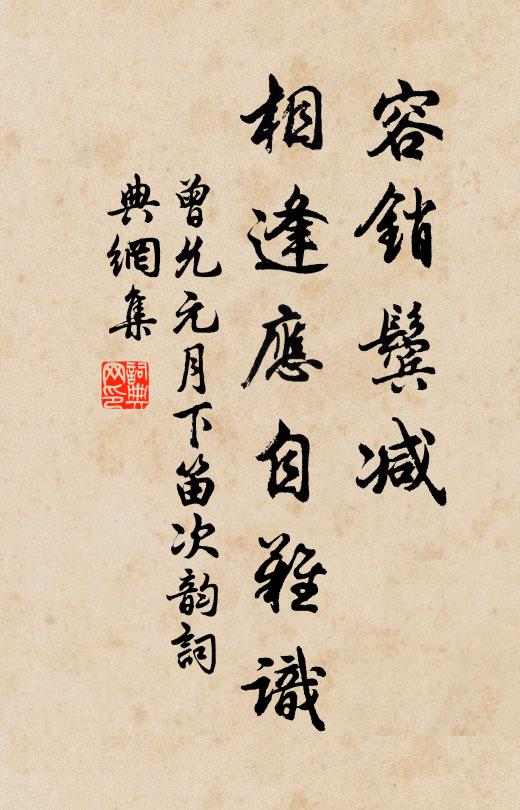 容銷鬓减
相逢應自難識
曾允元月下笛次韵詞
典網集
詞典
网印